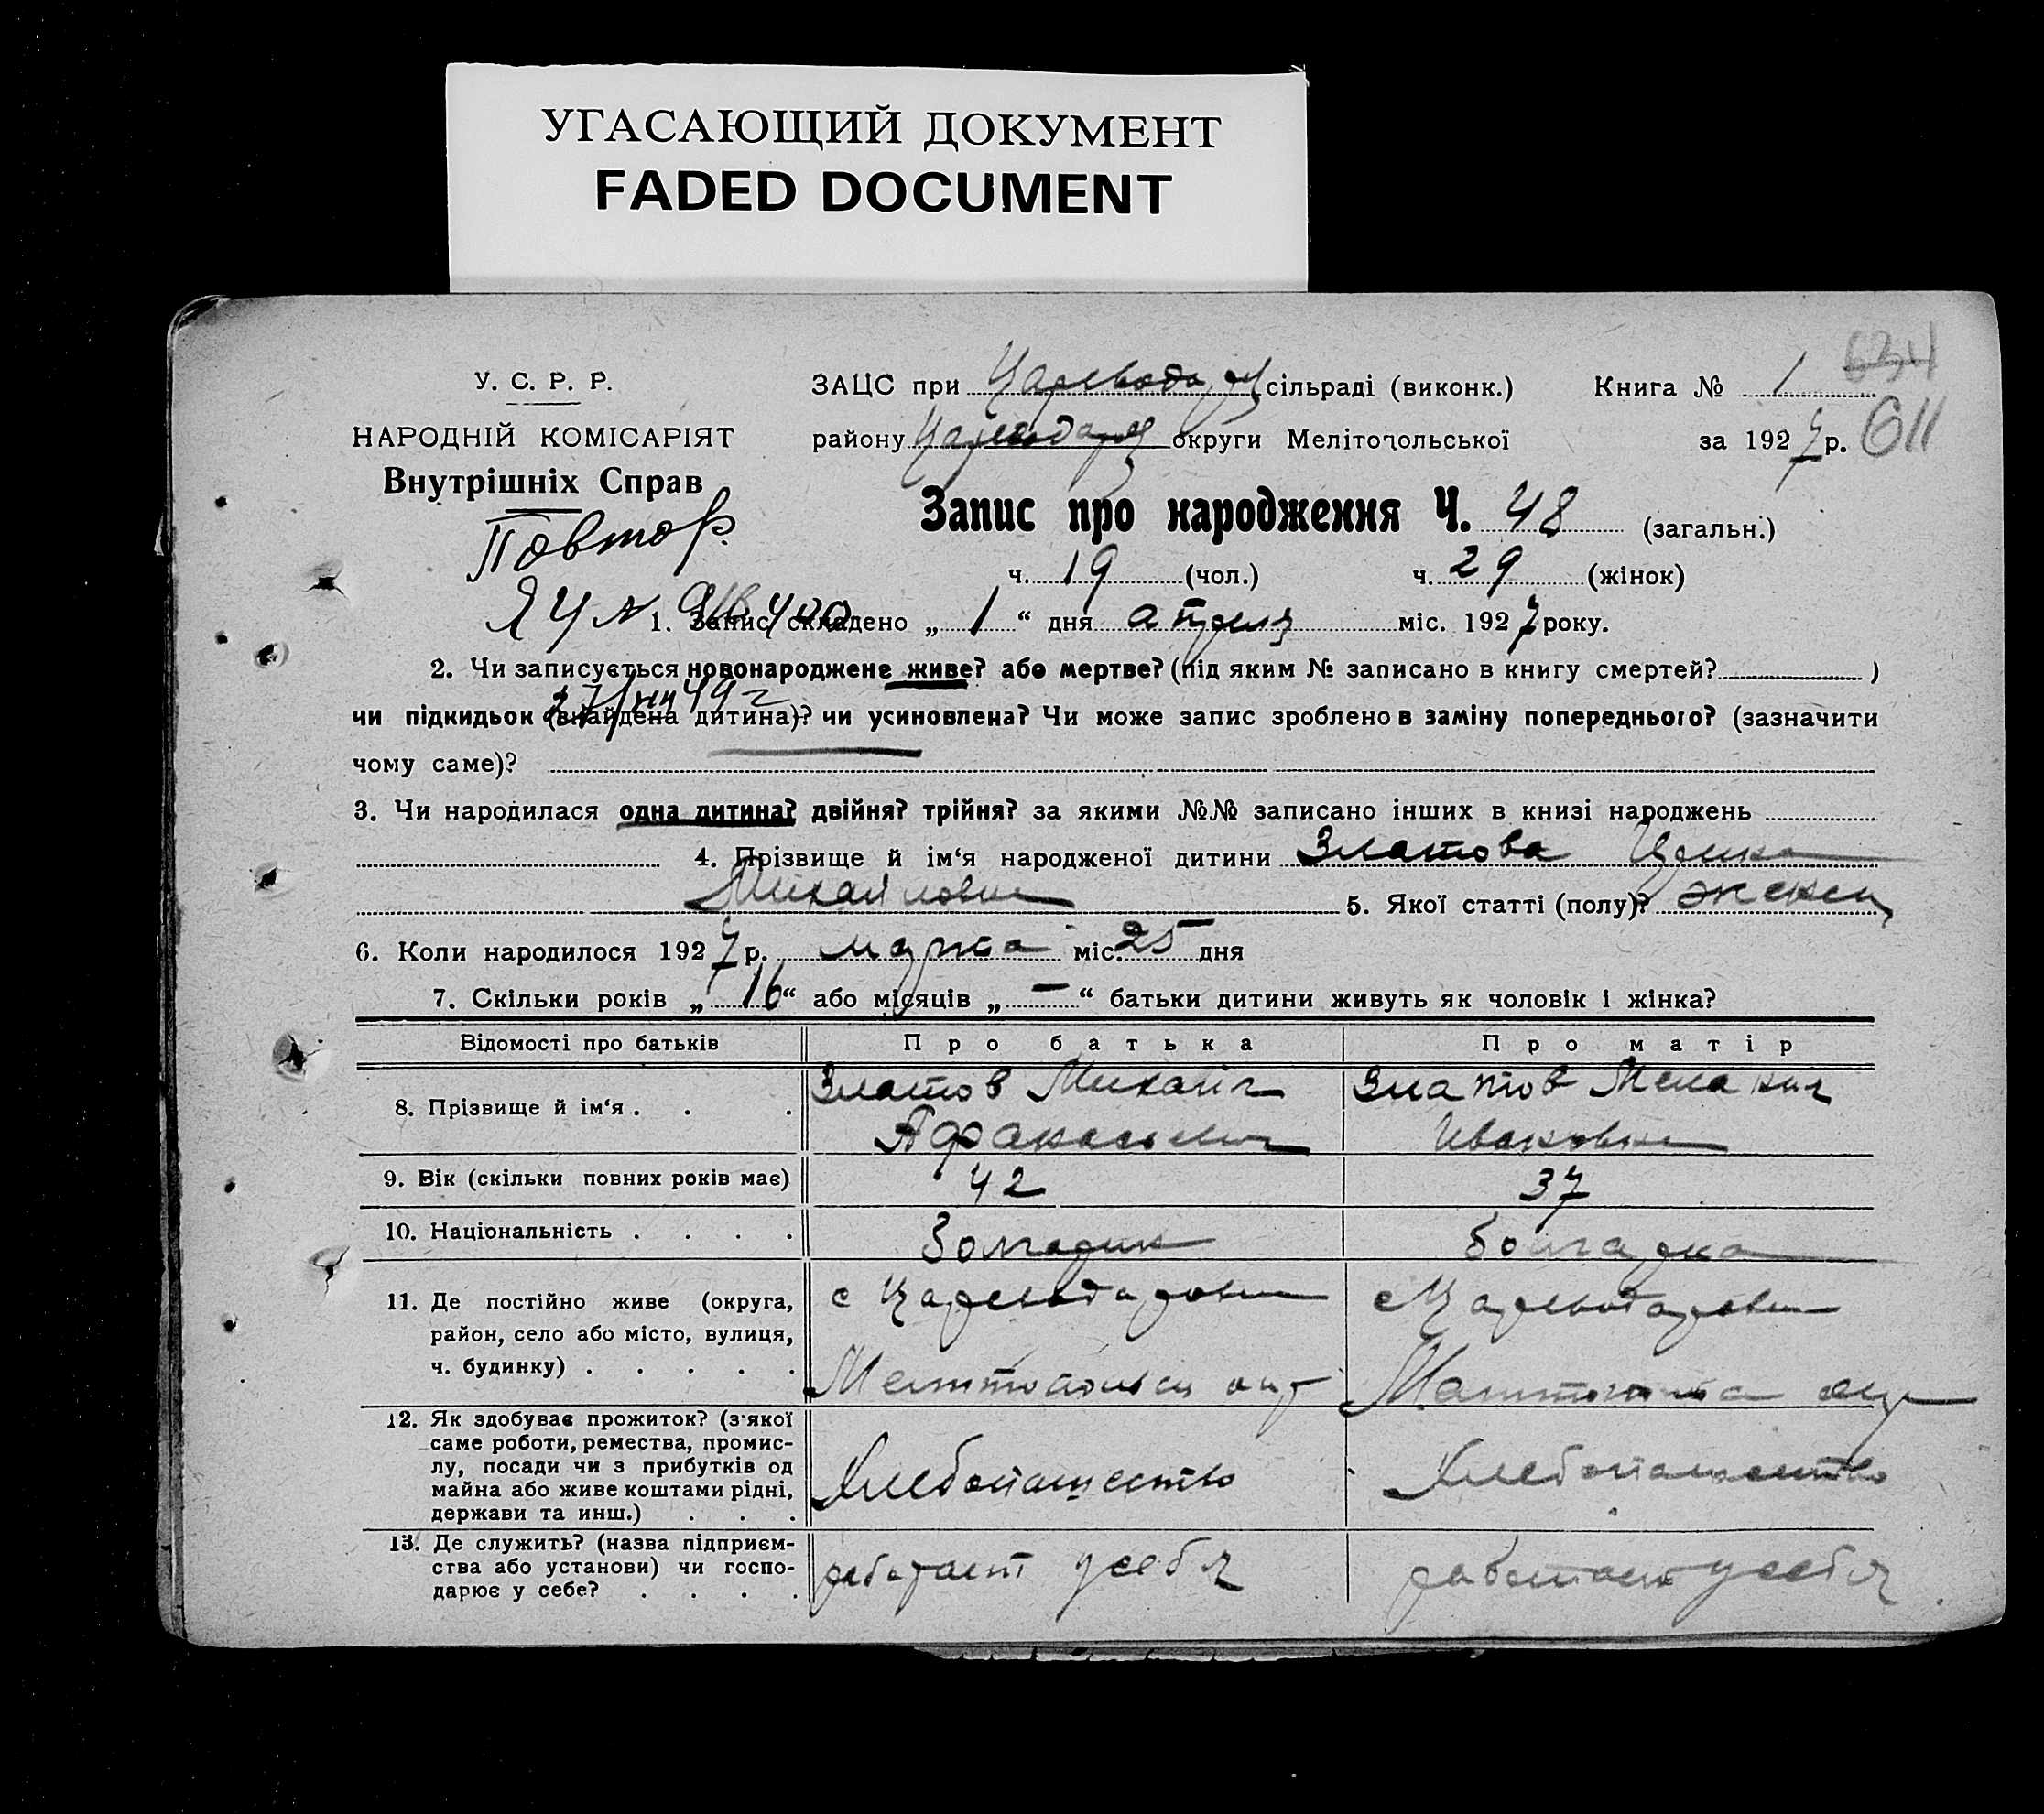 УГАСАЮЩИЙ ДОКУМЕНТ
FADED DOCUMENT
634
У. С. Р. Р.
ЗАЦС при Царевода сільраді (виконк.) Книга № 1
611
НАРОДНІЙ КОМІСАРІЯТ
району округи Мелітопольської за 1927 р.
Внутрішніх Справ
Повтор.
Запис про народження Ч. 48 (загальн.)
ч. 19 (чол.) ч. 29 (жінок)
ЯЦ № 400
1. Запис складено „ 1 “ дня апреля міс. 1927 року.
2. Чи записується новонароджене живе? або мертве? (під яким № записано в книгу смертей? )
27/VIII 49 г
чи підкидьок (знайдена дитина)? чи усиновлена? Чи може запис зроблено в заміну попереднього? (зазначити
чому саме)?
3. Чи народилася одна дитина? двійня? трійня? за якими №№ записано інших в книзі народжень
4. Прізвище й ім‘я народженої дитини Златова
Михайловна 5. Якої статті (полу)? женск
6. Коли народилося 1927 р. марта міс. 25 дня
7. Скільки років „ 16 “ або місяців „ — “ батьки дитини живуть як чоловік і жінка?
Відомості про батьків Про батька Про матір
8. Прізвище й ім‘я . . . Златов Михаил Златов
Афанасьевич Ивановна
9. Вік (скільки повних років має) 42 37
10. Національність . . . . Болгарин болгарка
11. Де постійно живе (округа, с Цареводаровка с Цареводаровка
район, село або місто, вулиця,
ч. будинку) . . . . . Мелитопольск окр окр
12. Як здобуває прожиток? (з‘якої
саме роботи, ремества, промис-
лу, посади чи з прибутків од Хлебопашество Хлебопашество
майна або живе коштами рідні,
держави та инш.) . . .
13. Де служить? (назва підприєм-
ства або установи) чи госпо- работает у себя работает у себя
дарює у себе? . . . .